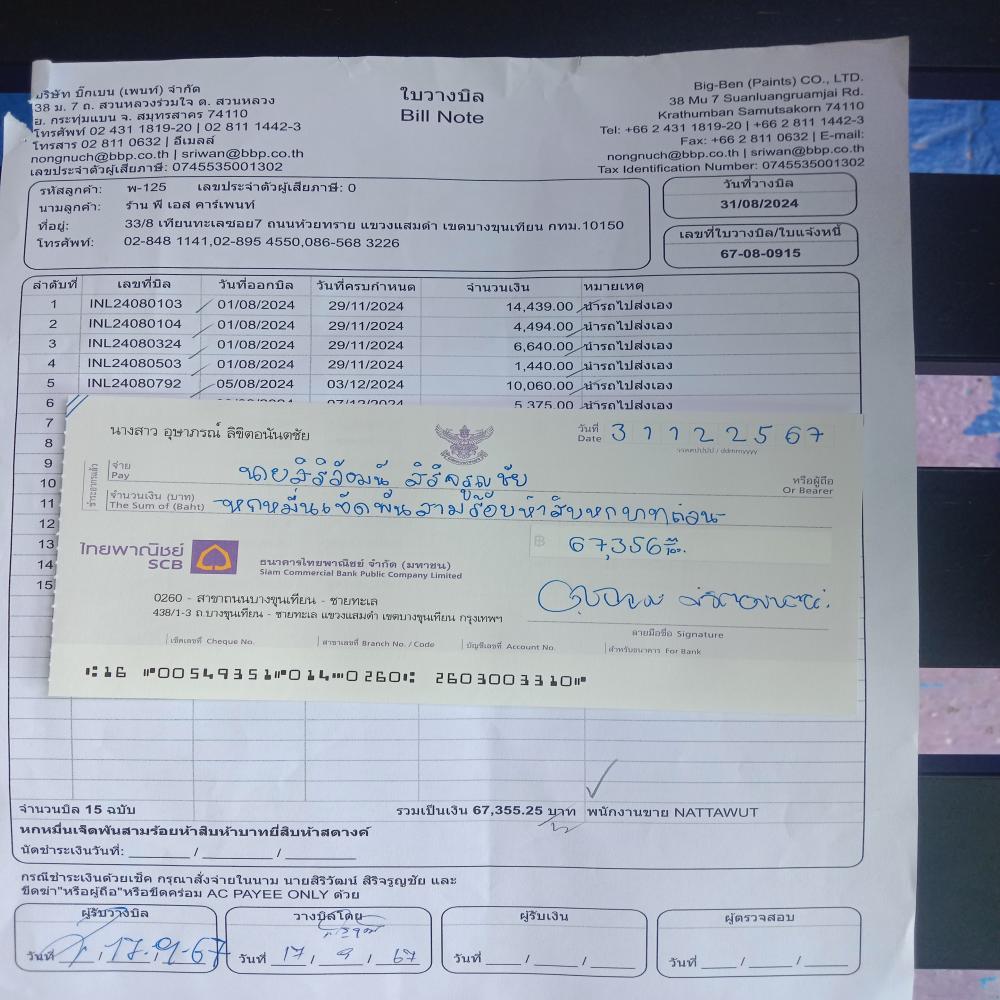 บริษัท บิ๊กเบน (เพนท์) จำกัด
38 ม. 7 ถ. สวนหลวงร่วมใจ ต. สวนหลวง
อ. กระทุ่มแบน จ. สมุทรสาคร 74110
โทรศัพท์ 02 431 1819-20 | 02 811 1442-3
โทรสาร 02 811 0632 | อีเมลล์
nongnuch@bbp.co.th | sriwan@bbp.co.th
เลขประจำตัวผู้เสียภาษี: 0745535001302
ใบวางบิล
Bill Note
Big-Ben (Paints) CO., LTD.
38 Mu 7 Suanluangruamjai Rd.
Krathumban Samutsakorn 74110
Tel: +66 2 431 1819-20 | +66 2 811 1442-3
Fax: +66 2 811 0632 | E-mail:
nongnuch@bbp.co.th | sriwan@bbp.co.th
Tax Identification Number: 0745535001302
รหัสลูกค้า: พ-125 เลขประจำตัวผู้เสียภาษี: 0
นามลูกค้า: ร้าน พี เอส คาร์เพนท์
ที่อยู่: 33/8 เทียนทะเลซอย7 ถนนห้วยทราย แขวงแสมดำ เขตบางขุนเทียน กทม.10150
โทรศัพท์: 02-848 1141,02-895 4550,086-568 3226
วันที่วางบิล
31/08/2024
เลขที่ใบวางบิล/ใบแจ้งหนี้
67-08-0915
ลำดับที่ เลขที่บิล วันที่ออกบิล วันที่ครบกำหนด จำนวนเงิน หมายเหตุ
1 INL24080103 01/08/2024 29/11/2024 14,439.00 นำรถไปส่งเอง
2 INL24080104 01/08/2024 29/11/2024 4,494.00 นำรถไปส่งเอง
3 INL24080324 01/08/2024 29/11/2024 6,640.00 นำรถไปส่งเอง
4 INL24080503 01/08/2024 29/11/2024 1,440.00 นำรถไปส่งเอง
5 INL24080792 05/08/2024 03/12/2024 10,060.00 นำรถไปส่งเอง
6 07/12/2024 5,375.00 นำรถไปส่งเอง
7
8
9
10
11
12
13
14
15
นางสาว อุษาภรณ์ ลิขิตอนันตชัย
วันที่ Date 31122567
ววดดปปปปป / ddmmyyyy
ชำระอากรแล้ว
จ่าย Pay นายสิริวัฒน์ สิริจรูญชัย หรือผู้ถือ Or Bearer
จำนวนเงิน (บาท) The Sum of (Baht) -หกหมื่นเจ็ดพันสามร้อยห้าสิบหกบาทถ้วน-
฿ 67,356
ไทยพาณิชย์
SCB
ธนาคารไทยพาณิชย์ จำกัด (มหาชน)
Siam Commercial Bank Public Company Limited
0260 - สาขาถนนบางขุนเทียน - ชายทะเล
438/1-3 ถ.บางขุนเทียน - ชายทะเล แขวงแสมดำ เขตบางขุนเทียน กรุงเทพฯ
ลายมือชื่อ Signature
เช็คเลขที่ Cheque No. สาขาเลขที่ Branch No. / Code บัญชีเลขที่ Account No. สำหรับธนาคาร For Bank
⑆16 ⑈00549351⑈014⑉0260⑆ 2603003310⑈
จำนวนบิล 15 ฉบับ รวมเป็นเงิน 67,355.25 บาท พนักงานขาย NATTAWUT
หกหมื่นเจ็ดพันสามร้อยห้าสิบห้าบาทยี่สิบห้าสตางค์
นัดชำระเงินวันที่: ______ / ______ / ______
กรณีชำระเงินด้วยเช็ค กรุณาสั่งจ่ายในนาม นายสิริวัฒน์ สิริจรูญชัย และ
ขีดฆ่า"หรือผู้ถือ"หรือขีดคร่อม AC PAYEE ONLY ด้วย
ผู้รับวางบิล
วันที่ 17-9-67
วางบิลโดย
วันที่ 17 / 9 / 67
ผู้รับเงิน
วันที่ ___ / ___ / ___
ผู้ตรวจสอบ
วันที่ ___ / ___ / ___